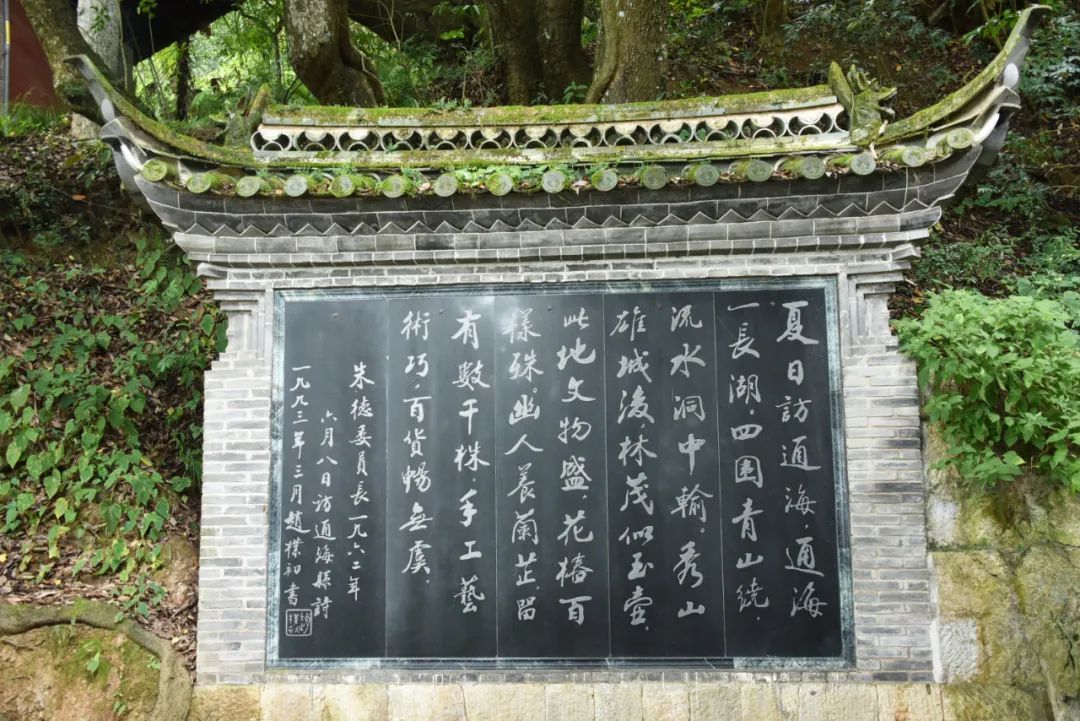 夏日訪通海，通海
一長湖。四圍青山繞，
流水洞中輸。秀山
雄城後，林茂似玉壺。
此地文物盛，花椿百
樣殊。幽人養蘭芷，留
有數千株。手工藝
術巧，百貨暢無虞。
朱德委員長一九六二年
六月八日訪通海縣詩
一九九三年三月趙樸初書